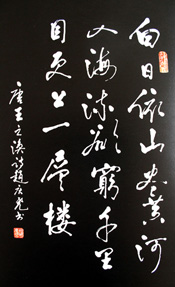 白日依山尽黄河
入海流欲窮千里
目更上一层楼
唐王之涣诗